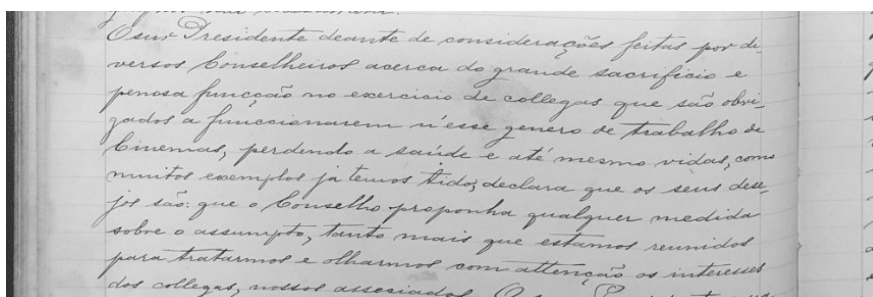 O snr Presidente deante de considerações feitas por di-
versos Conselheiros acerca do grande sacrificio e
penosa funcção no exercicio de collegas que são obri-
gados a funccionarem n'esse genero de trabalho de
Cinemas, perdendo a saúde e até mesmo vidas, como
muitos exemplos já temos tido, declara que os seus dese-
jos são: que o Conselho proponha qualquer medida
sobre o assumpto, tanto mais que estamos reunidos
para tratarmos e olharmos com attenção os interesses
dos collegas, nossos associados. O